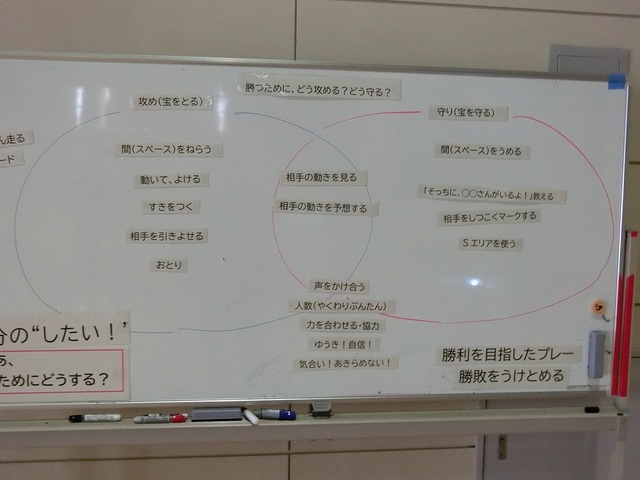 勝つために、どう攻める?どう守る?
攻め(宝をとる)
守り(宝を守る)
ん走る
ード
間(スペース)をねらう
動いて、よける
すきをつく
相手を引きよせる
おとり
相手の動きを見る
相手の動きを予想する
間(スペース)をうめる
「そっちに、○○さんがいるよ!」教える
相手をしつこくマークする
Sエリアを使う
声をかけ合う
人数(やくわりぶんたん)
力を合わせる・協力
ゆうき!自信!
気合い!あきらめない!
分の“したい!”
あ、
ためにどうする?
勝利を目指したプレー
勝敗をうけとめる